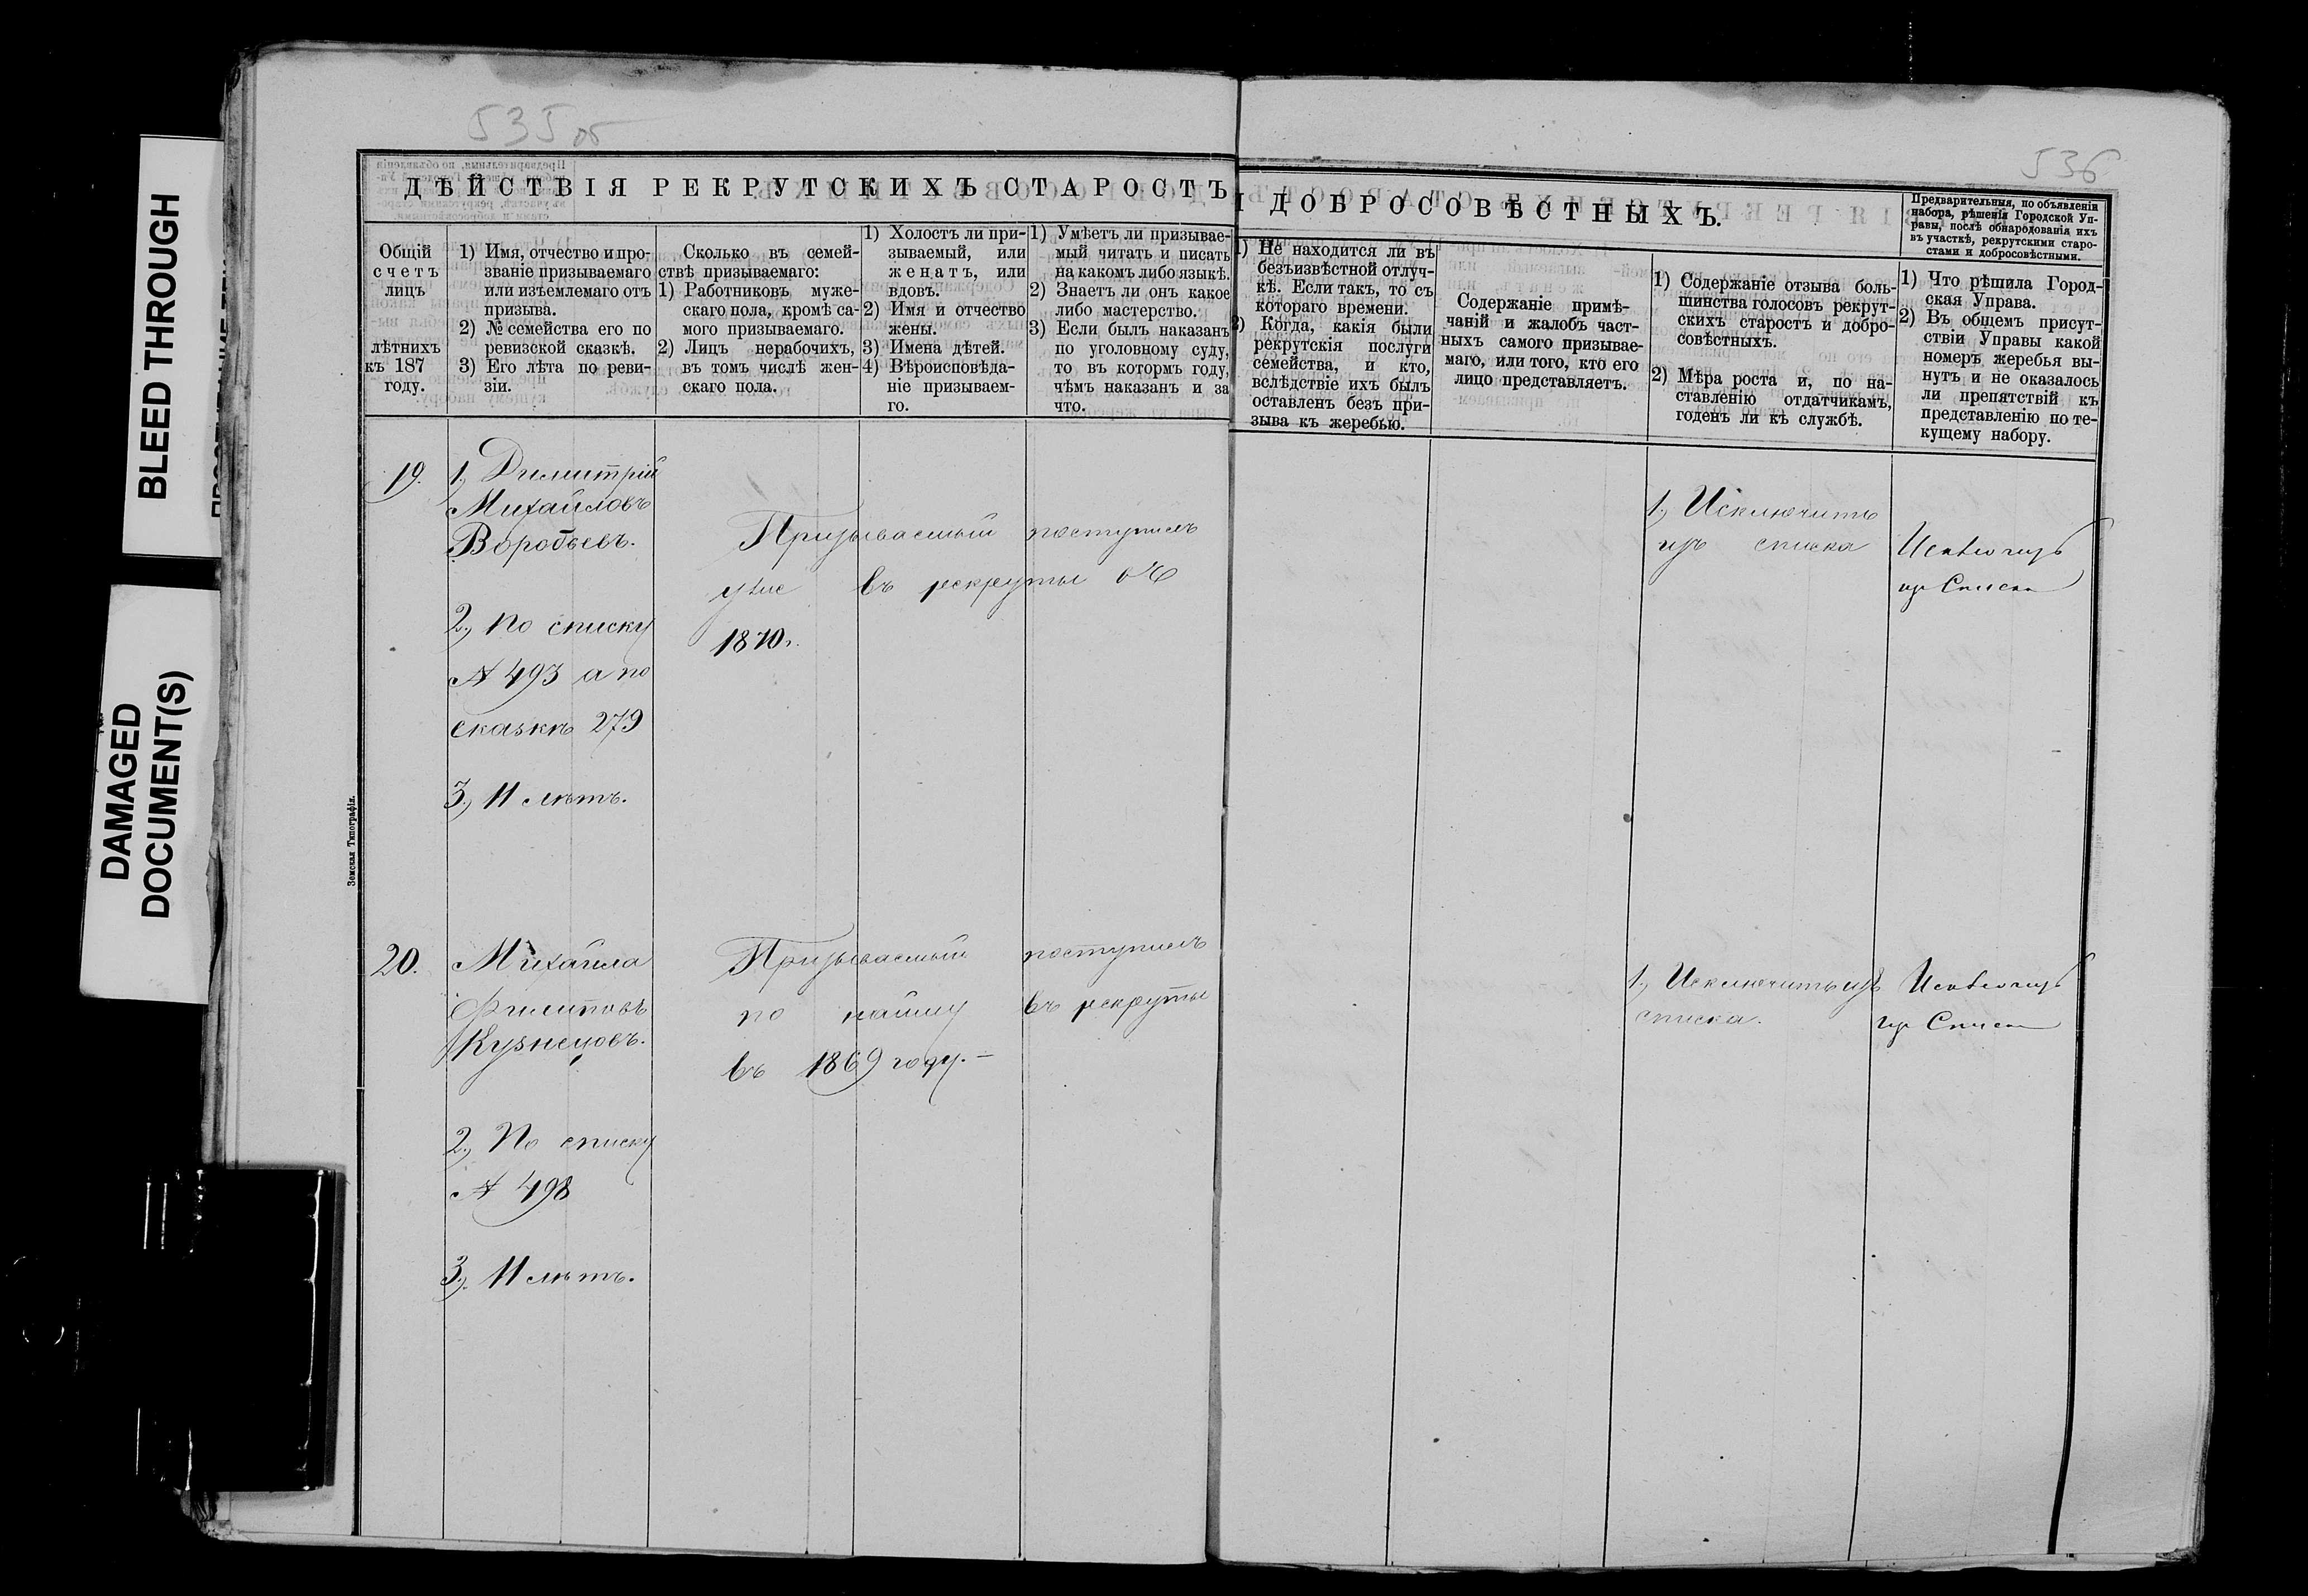 BLEED THROUGH
DAMAGED
DOCUMENT(S)
535 об
536
ДѢЙСТВІЯ РЕКРУТСКИХЪ СТАРОСТЪ
И ДОБРОСОВѢСТНЫХЪ.
Предварительныя, по объявленіи
набора, рѣшенія Городской Уп-
равы, послѣ обнародованія ихъ
въ участкѣ, рекрутскими старо-
стами и добросовѣстными.
Общій
счетъ
лицъ
лѣтнихъ
къ 187
году.
1) Имя, отчество и про-
званіе призываемаго
или изъемлемаго отъ
призыва.
2) № семейства его по
ревизской сказкѣ.
3) Его лѣта по реви-
зіи.
Сколько въ семей-
ствѣ призываемаго:
1) Работниковъ муже-
скаго пола, кромѣ са-
мого призываемаго.
2) Лицъ нерабочихъ,
въ томъ числѣ жен-
скаго пола.
1) Холостъ ли при-
зываемый, или
женатъ, или
вдовъ.
2) Имя и отчество
жены.
3) Имена дѣтей.
4) Вѣроисповѣда-
ніе призываем-
го.
1) Умѣетъ ли призывае-
мый читать и писать
на какомъ либо языкѣ.
2) Знаетъ ли онъ какое
либо мастерство.
3) Если былъ наказанъ
по уголовному суду,
то въ которм году,
чѣмъ наказанъ и за
что.
1) Не находится ли въ
безъизвѣстной отлуч-
кѣ. Если такъ, то съ
котораго времени.
2) Когда, какія были
рекрутскія послуги
семейства, и кто,
вслѣдствіе ихъ былъ
оставленъ безъ при-
зыва къ жеребью.
Содержаніе примѣ-
чаній и жалобъ част-
ныхъ самого призывае-
маго, или того, кто его
лицо представляетъ.
1) Содержаніе отзыва боль-
шинства голосовъ рекрут-
скихъ старостъ и добро-
совѣстныхъ.
2) Мѣра роста и, по на-
ставленію отдатчикамъ,
годенъ ли къ службѣ.
1) Что рѣшила Город-
ская Управа.
2) Въ общемъ присут-
ствіи Управы какой
номеръ жеребья вы-
нутъ и не оказалось
ли препятствій къ
представленію по те-
кущему набору.
19.
1., Димитрій
Михайловъ
Воробьевъ.
2., по списку
№ 493 а по
сказкѣ 279
3., 11 лѣтъ.
Призываемый поступилъ
уже въ рекруты въ
1870г.
1., Исключить
изъ списка
Исключить
изъ Списка
20.
Михайла
Филиповъ
Кузнецовъ.
2., По списку
№ 498
3., 11 лѣтъ.
Призываемый поступилъ
по найму въ рекруты
въ 1869 году. —
1., Исключить изъ
списка.
Исключить
изъ Списка
Земская Типографія.